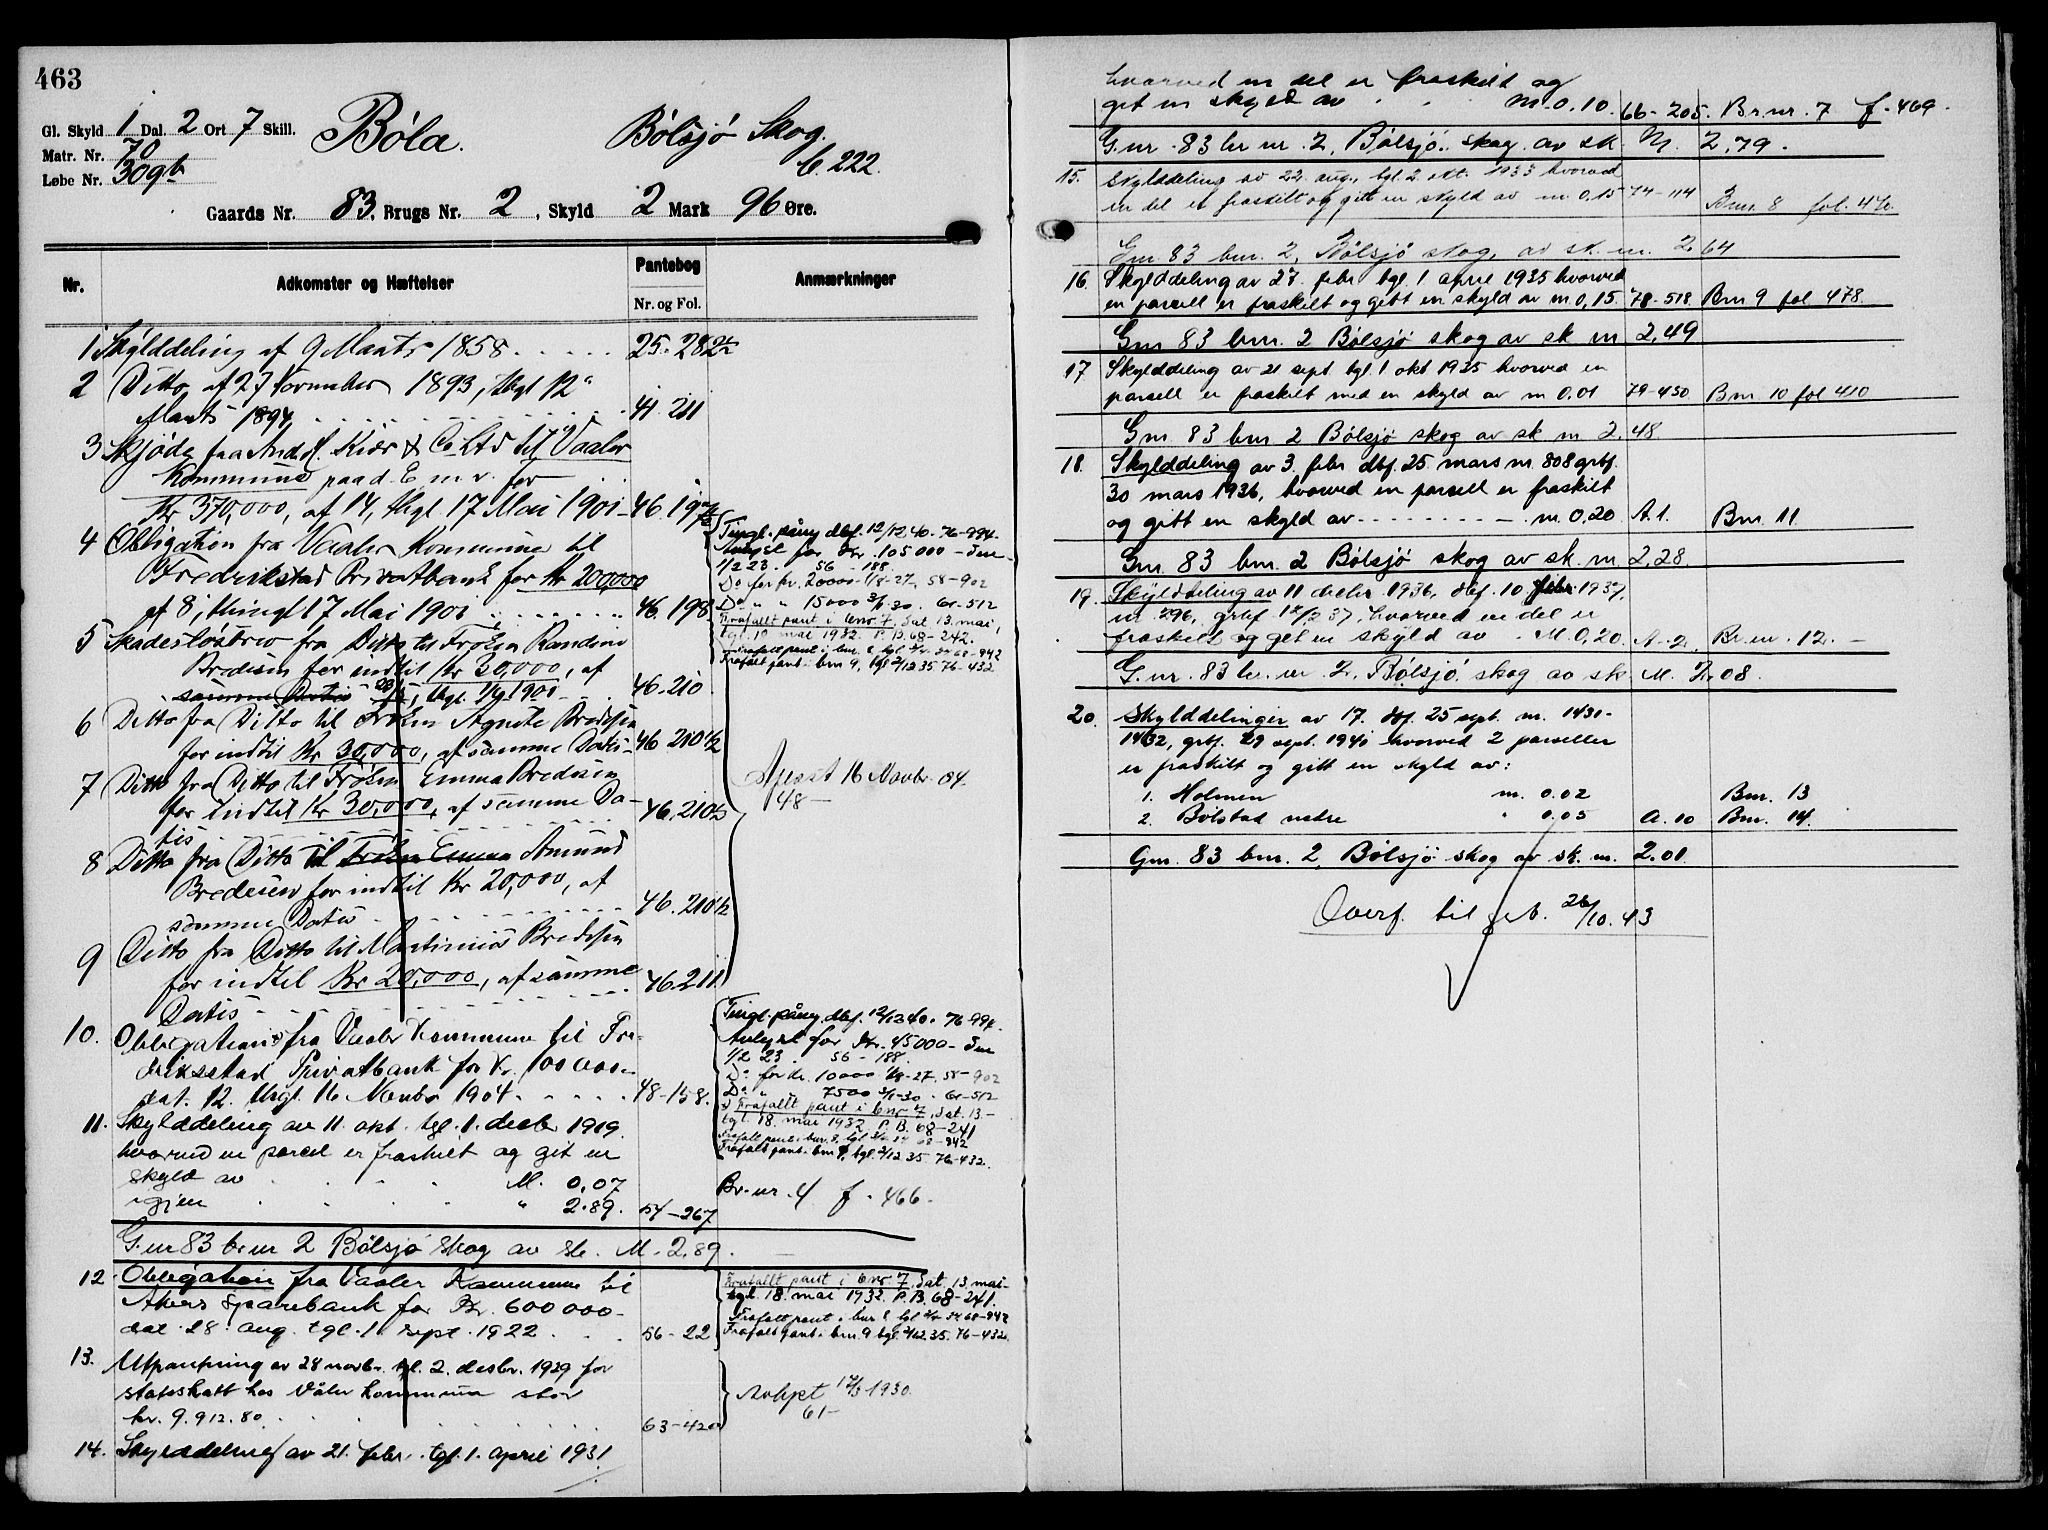 463
Gl. Skyld 1 Dal. 2 Ort 7 Skill.
Matr. Nr. 70
Løbe Nr. 309b
Bóla. Bólsjó Skog.
b. 222.
Gaards Nr. 83, Brugs Nr. 2, Skyld 2 Mark 96 Øre.
Nr. Adkomster og Hæftelser Pantebog Anmærkninger
Nr. og Fol.
1 Skylddeling af 9 Marts 1858 . . . . . 25. 282
2 Ditto af 27 November 1893, thgl 12
Marts 1894, . . . . . . 41. 211
3 Skjöde fra And. H. Kiær & Co Ltd til Vaaler
Kommune paa d. E. m. v. for . .
Kr 370,000, af 14, thgl. 17 Mai 1901 - 46. 197
4 Obligation fra Vaaler Kommune til
Fredrikstad Privatbank for Kr 200,000
af 8, thingl 17 Mai 1901 . . . . 46. 198
Tingl. påny dbf. 12/12 40. 76-994.
Avlyst for Kr. 105 000 -
1/2 23. 56 - 188.
Do for kr. 20000 - 1/8-27, 58-902
Do " " 15000 3/1-30. 61-512
Frafallt pant i bnr 7, Dat. 13. mai,
tgl. 18 mai 1932. P.B. 68-242.
Frafalt pant i bnr. 8 68-942
Frafalt pant i bnr 9, tgl 2/12 35 76-432.
5 Skadeslösbrev fra Ditto til Fröken Randine
Bredesen for indtil Kr 30,000, af
samme Datis 20/5, thgl. 1/6 1901 - 46-210
6 Ditto fra Ditto til Fröken Agnete Bredesen
for indtil Kr 30,000, af samme Datis - 46-210 1/2
7 Ditto fra Ditto til Fröken Emma Bredesen
for indtil Kr 30,000, af samme Da-
tis . . . . 46.210 1/2
Aflyst 16 Novbr. 04.
48 -
8 Ditto fra Ditto til Fröken Emma Amund
Bredesen for indtil Kr 20,000, af
samme Datis . . . . 46.210 1/2
9 Ditto fra Ditto til Martinius Bredesen
for indtil Kr 20,000, af samme
Datis . . . . 46.211
10. Obligation fra Vaaler Kommune til Fre-
drikstad Privatbank for Kr. 100 000 -
dat. 12. thgl. 16 Novbr 1904 . . . . . 48-158.
Tingl. påny dbf. 12/12 40. 76-994.
Avlyst for Kr. 45000 -
1/2 23. 56 - 188.
Do for kr. 10000 1/8-27, 58-902
Do " 7500 3/1-30. 61-512
Frafallt pant i bnr 7, Dat. 13. -
tgl. 18. mai 1932 P.B. 68-241
Frafalt pant i bnr. 8, tgl 68-942
Frafalt pant i bnr 9, tgl. 2/12 35 76-432.
11. Skylddeling av 11. okt. tgl. 1. decbr 1919.
hvorved en parcel er fraskilt og git en
skyld av . . . . M. 0,07
igjen . . . . " 2.89. 54-267
Br. nr. 4 f. 466.
G. nr 83 br nr 2 Bólsjó Skog av sk. M. 2,89.
12. Obligation fra Vaaler Kommune til
Akers Sparebank for Kr. 600 000 -
dat. 28. aug. tgl. 1 sept. 1922 . . . 56-22
Frafallt pant i bnr 7. Dat. 13. mai -
tgl. 18. mai 1932. P.B. 68-241.
Frafalt pant i bnr 8 68-942
Frafalt pant i bnr. 9 tgl. 2/12 35. 76-432.
13. Utpantning av 28 novbr. tgl. 2. desbr. 1929 for
statsskatt hos Våler kommune stor
kr. 9.912.80 . . . . 63-420
Avlyst 12/3 1930.
61 -
14. Skylddeling av 21. febr. tgl. 1. april 1931.
hvorved en del er fraskilt og
git en skyld av . . M. 0.10. 66-205. Br. nr. 7 f. 469.
G. nr. 83 br nr. 2, Bólsjó skog av sk. M. 2.79.
15. Skylddeling av 22. aug., tgl. 2. okt. 1933 hvorved
en del er fraskilt og gitt en skyld av m. 0,15 74-114 Bnr. 8 fol. 470.
Gnr 83 bnr. 2, Bólsjö skog, av sk. m. 2.64
16. Skylddeling av 27. febr. tgl. 1 april 1935 hvorved
en parsell er fraskilt og gitt en skyld av m. 0,15. 78-518 Bnr 9 fol 478.
Gnr 83 bnr. 2 Bólsjö skog av sk m 2,49
17 Skylddeling av 21 sept. tgl. 1 okt 1935 hvorved en
parsell er fraskilt med en skyld av m 0,01 79-450 Bnr 10 fol 410
Gnr 83 bnr 2 Bölsjø skog av sk m 2.48
18. Skylddeling av 3. febr. dbf. 25. mars nr. 808 grbf.
30 mars 1936, hvorved en parsell er fraskilt
og gitt en skyld av - - - - m. 0,20 A. 1. Bnr. 11
Gnr. 83 bnr. 2 Bölsjø skog av sk. m. 2,28
19. Skylddeling av 11 decbr. 1936, dbf. 10 febr. 1937,
nr 296, grbf 12/2 37, hvorved en del er
fraskilt og get en skyld av . M. 0,20. A-2. Br. nr. 12. -
G. nr. 83 br. nr. 2, Bölsjö skog av sk M. 2.08.
20. Skylddelinger av 17. dbf. 25 sept. nr. 1431-
1432, grbf. 29 sept. 1940 hvorved 2 parseller
er fraskilt og gitt en skyld av:
1. Holmen m. 0.02 Bnr. 13
2. Bølstad nedre " 0.05 A. 10 Bnr. 14.
Gnr. 83 bnr. 2, Bölsjö skog av sk. m. 2.01.
Overf. til g.b. 26/10. 43